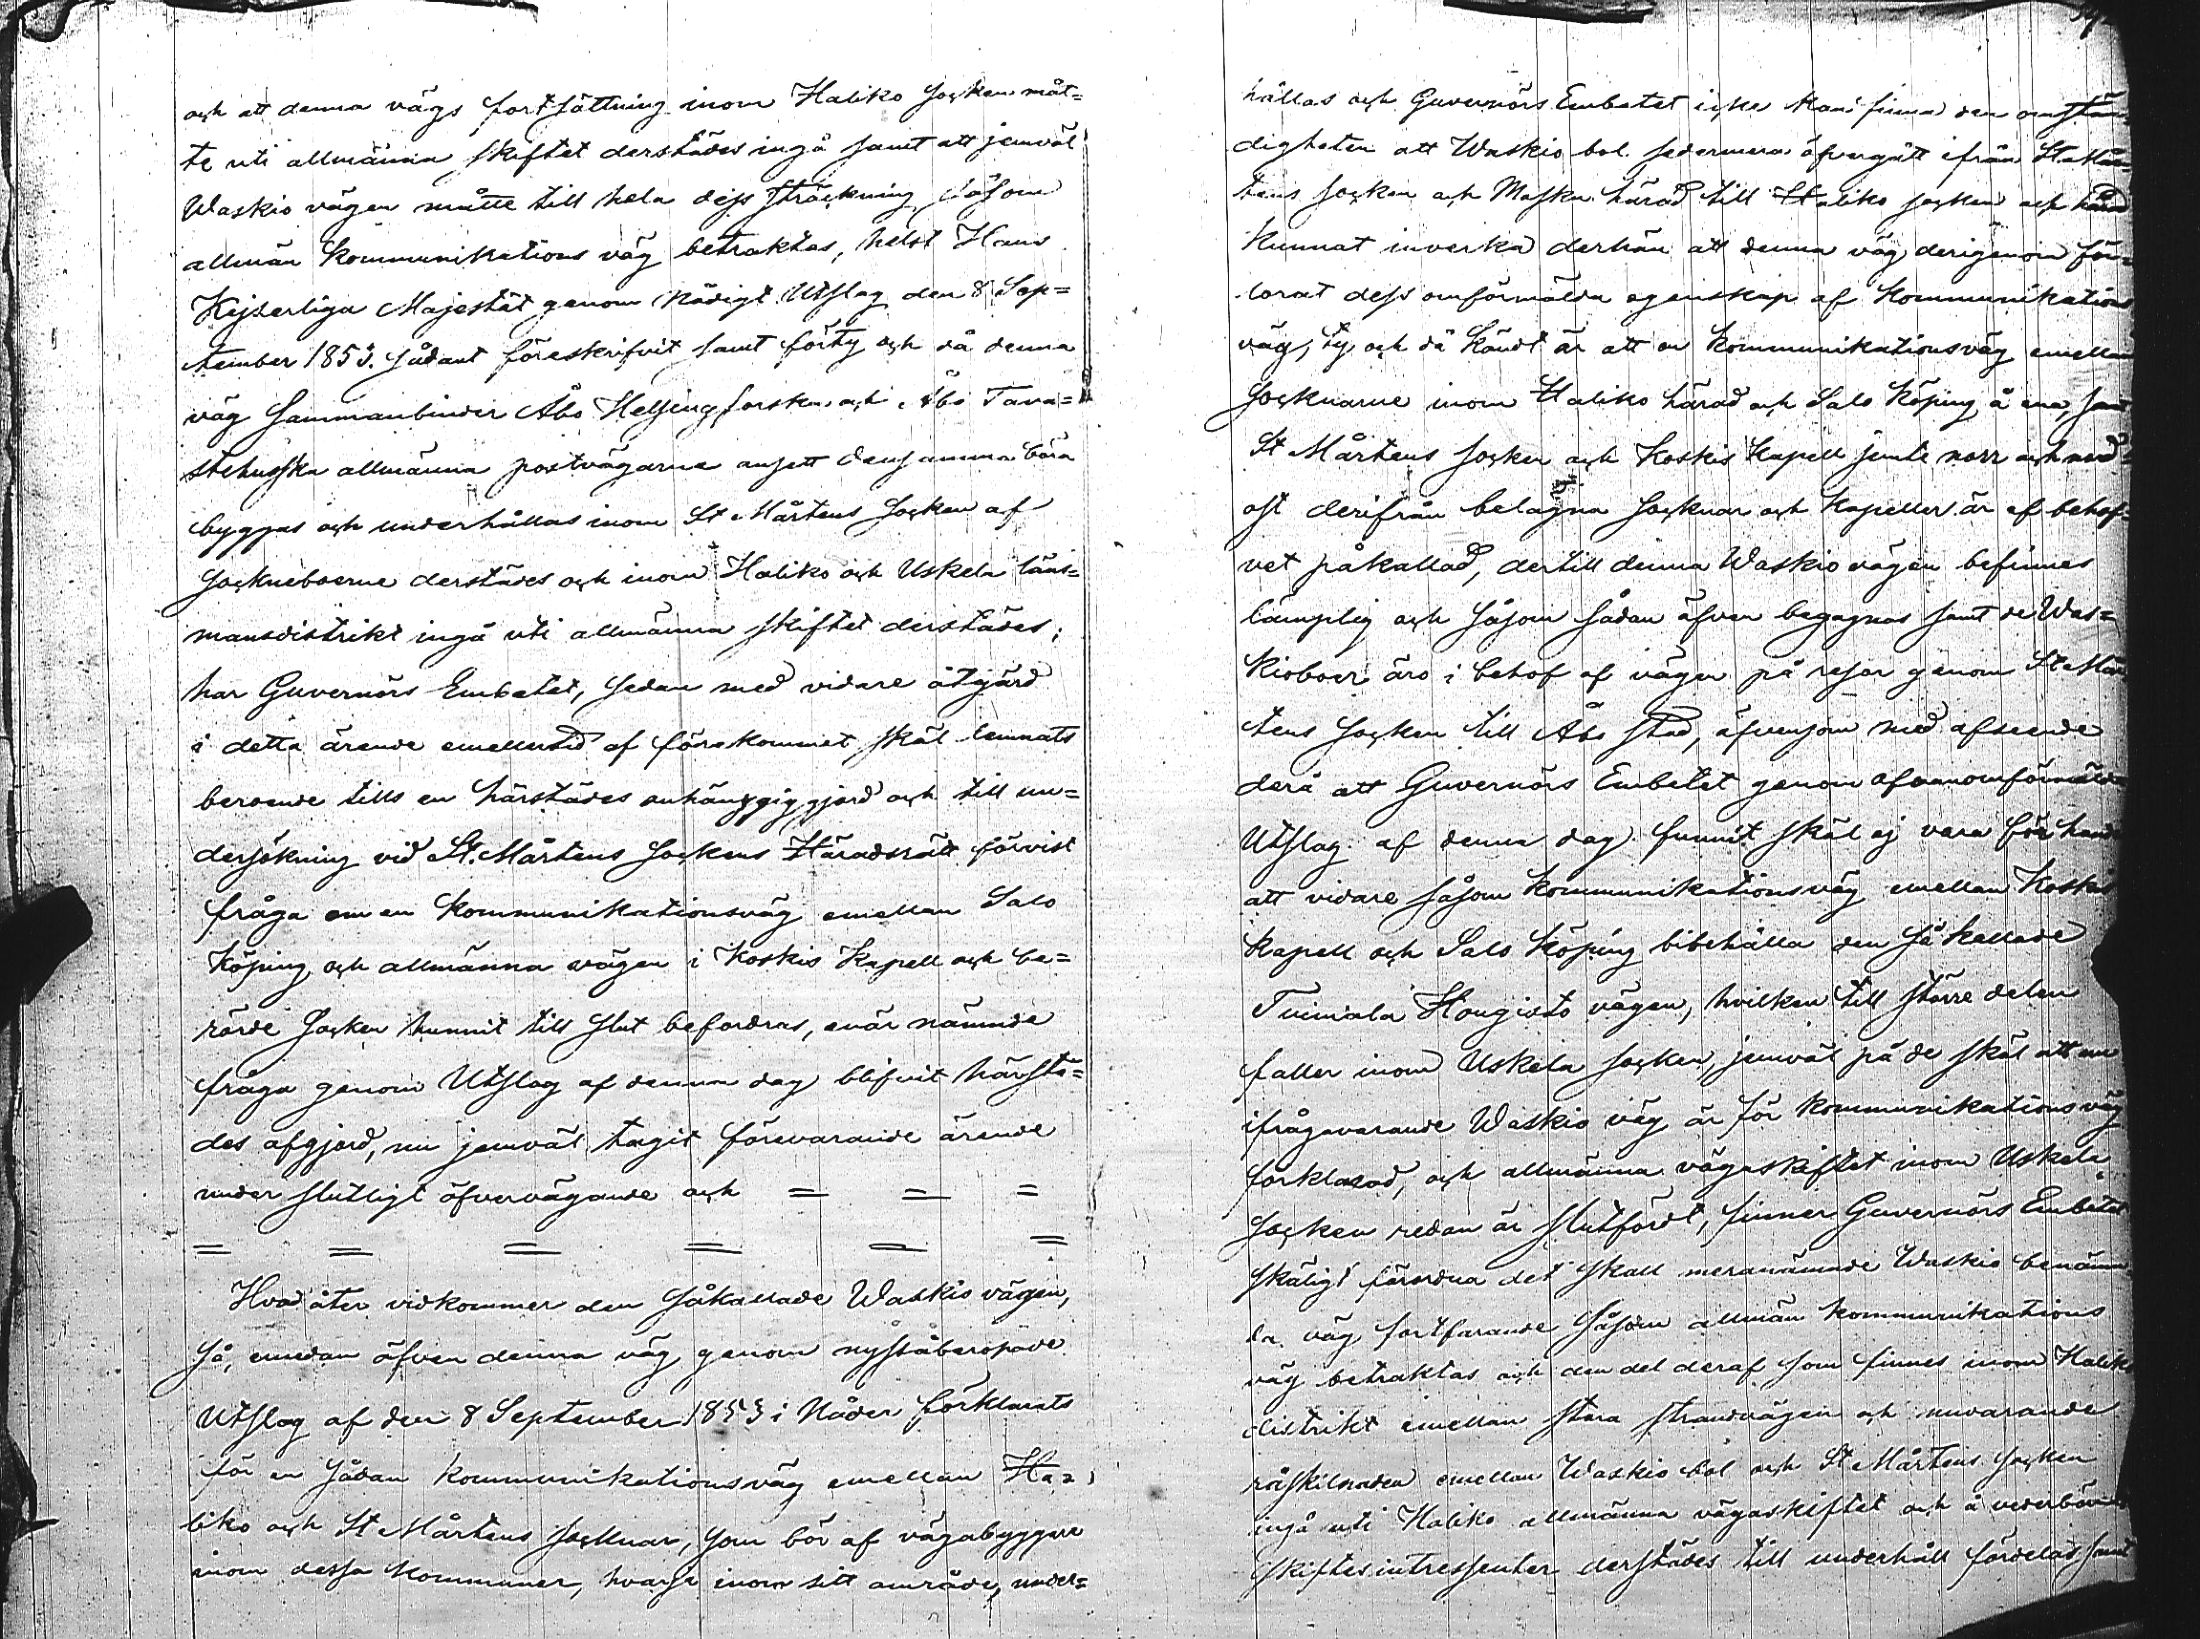 och att denna vägs fortsättning inom Haliko Socken måt=
te uti allmänna skiftet derstädes ingå samt att jemväl
Waskio vägen måtte till hela dess sträckning såsom
allmän Kommunikations väg betraktas, helst Hans
Kejserliga Majestät genom Nådigt Utslag den 8 Sep=
tember 1853. sådant föreskrifvit samt förty och då denna
väg Sammanbinder Åbo Helsingforska och Åbo Tava=
stehusska allmänna postvägarne ansett densamma böra
byggas och underhållas inom St Mårtens Socken af
Sockneboerne derstädes och inom Haliko och Uskela läns=
mansdistrikt ingå uti allmänna skiftet derstädes;
har Guvernörs Embetet, sedan med vidare åtgärd
i detta ärende emellertid af förekommet skäl lemnats
beroende tills en härstädes anhängiggjord och till un=
dersökning vid St. Mårtens Sockens Häradsrätt förvist
fråga om en Kommunikationsväg emellan Salo
Köping och allmänna vägen i Koskis Kapell och be=
rörde Socken hunnit till slut befordras, enär nämnde
fråga genom Utslag af denna dag blifvit härstä=
des afgjord, nu jemväl tagit förevarande ärende
under slutligt öfvervägande och = = =
= = = = = =
Hvad åter vidkommer den såkallade Waskio vägen,
så, emedan äfven denna väg genom nyssåberopade
Utslag af den 8 September 1853 i Nåder förklarats
för en sådan kommunikationsväg emellan Ha=
liko och St Mårtens Socknar, som bör af vägabyggare
inom dessa Kommuner, hvarje inom sitt område, under=
hållas och Guvernörs Embetet icke kan finna den omstän=
digheten att Waskio bol sedermera öfvergått ifrån St Mår=
tens Socken och Masku härad till Haliko socken och härad
kunnat inverka derhän att denna väg derigenom för=
lorat dess omförmälda egenskap af Kommunikations
väg, ty och då kändt är att en Kommunikationsväg emellan
Socknarne inom Haliko härad och Salo Köping å ena, samt
St Mårtens Socken och Koskis Kapell jemte norr och nord=
ost derifrån belägna Socknar och Kapeller är af behof=
vet påkallad, dertill denna Waskio vägen befinnes
lämplig och såsom sådan äfven begagnas samt de Was=
kioboer äro i behof af vägen på resor genom St Mår=
tens Socken till Åbo stad, äfvensom med afseende
derå att Guvernörs Embetet genom ofvanomförmälda
Utslag af denna dag funnit skäl ej vara för hand
att vidare såsom kommunikationsväg emellan Koskis
Kapell och Salo Köping bibehålla den så kallade
Tuimala Hongisto vägen, hvilken till större delen
faller inom Uskela Socken, jemväl på de skäl att nu
ifrågavarande Waskio väg är för kommunikationsväg
förklarad, och allmänna vägaskiftet inom Uskela
Socken redan är slutfördt, finner Guvernörs Embetet
skäligt förordna det skall meranämnde Waskio benämn
da väg fortfarande såsom allmän kommunikations
väg betraktas och den del deraf som finnes inom Haliko
distrikt emellan stora strandvägen och nuvarande
råskilnaden emellan Waskio bol och St Mårtens Socken
ingå uti Haliko allmänna vägaskiftet och å vederbörande
skiftesintressenter derstädes till underhåll fördelas samt